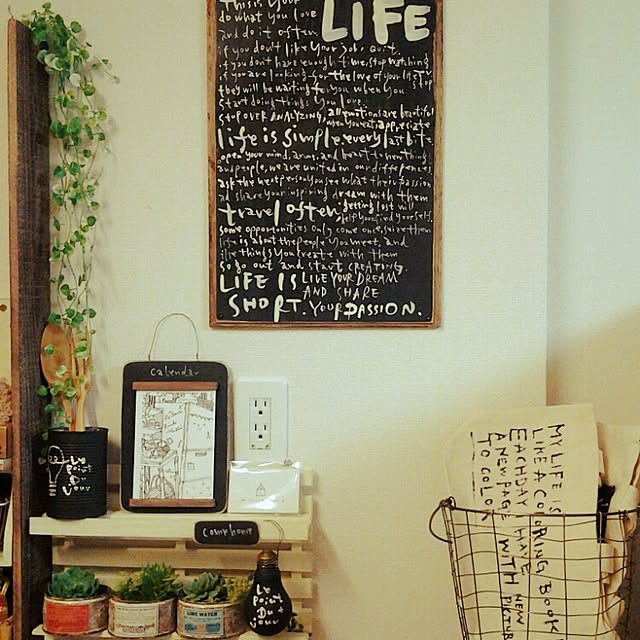 THIS IS YOUR
LIFE
do what you love
and do it often
if you don't like your job, quit.
if you don't have enough time, stop watching
if you are looking for the love of your life, stop
they will be waiting for you when you
start doing things you love.
STOP OVER ANALYZING, all emotions are beautiful
when you eat, appreciate
life is simple. every last bite
open your mind, arms, and heart to new things
and people, we are united in our differences
ask the next person you see what their passion
is, share your inspiring dream with them
travel often; getting lost will
help you find yourself.
some opportunities only come once, seize them
life is about the people you meet, and
the things you create with them
so go out and start CREATING.
LIFE IS LIVE YOUR DREAM
AND SHARE
SHORT. YOUR PASSION.
calendar
Le
Point
Du
Jour
come home
Le
Point
Du
Jour
LIME WATER
MY LIFE IS
LIKE A COLORING BOOK
EACHDAY I HAVE NEW
A NEW PAGE WITH
TO COLOR